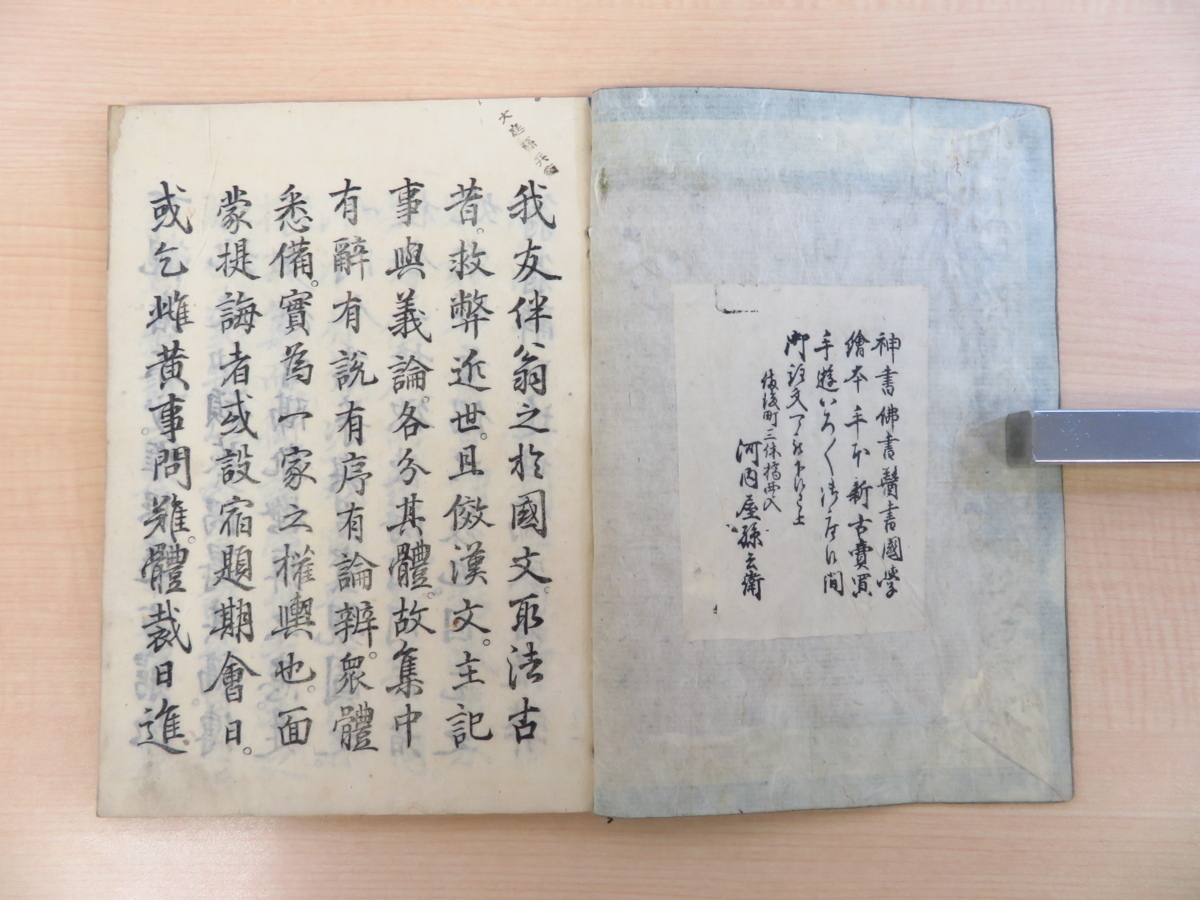 神書佛書醫書國学
繪本手本新古賣買
手遊いろ〱
河内屋孫兵衛
我友伴翁之於國文。取法古
昔。救弊近世。且倣漢文。主記
事與義論。各分其體。故集中
有辭有說有序有論辨。衆體
悉備。實為一家之權輿也。面
蒙提誨者或設宿題期會日。
或乞雌黄事問難。體裁日進